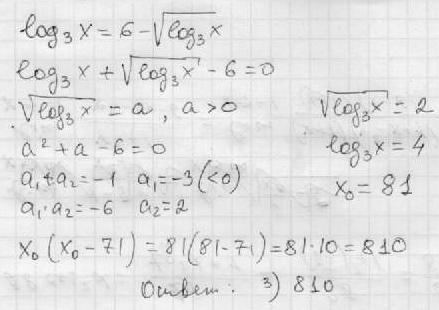 log₃x = 6 - √log₃x
log₃x + √log₃x - 6 = 0
√log₃x = a, a > 0
a² + a - 6 = 0
a₁ + a₂ = -1 a₁ = -3 (<0)
a₁ · a₂ = -6 a₂ = 2
√log₃x = 2
log₃x = 4
x₀ = 81
x₀(x₀ - 71) = 81(81 - 71) = 81 · 10 = 810
Ответ: 3) 810